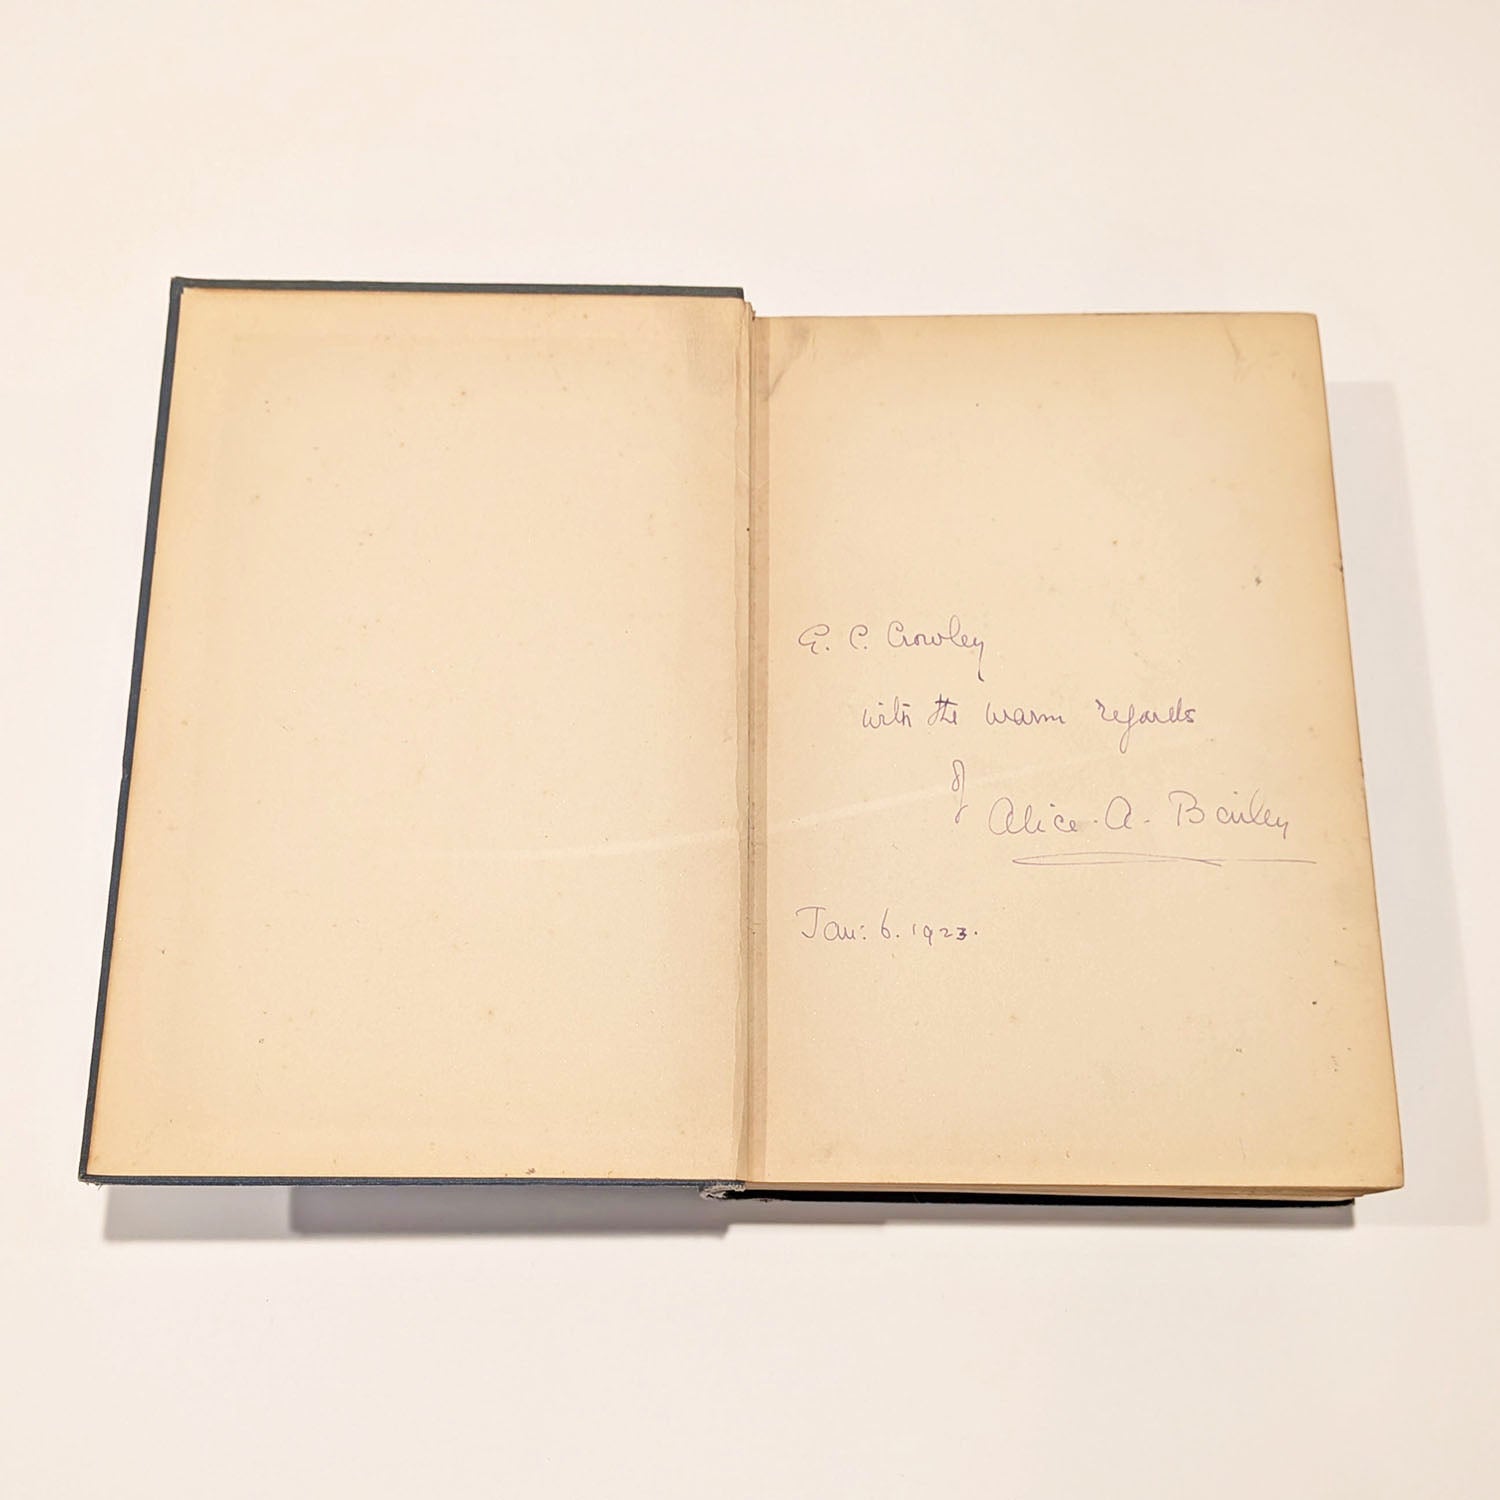 G. C. Crowley
with the warm regards
of Alice. A. Bailey
Jan: 6. 1923.